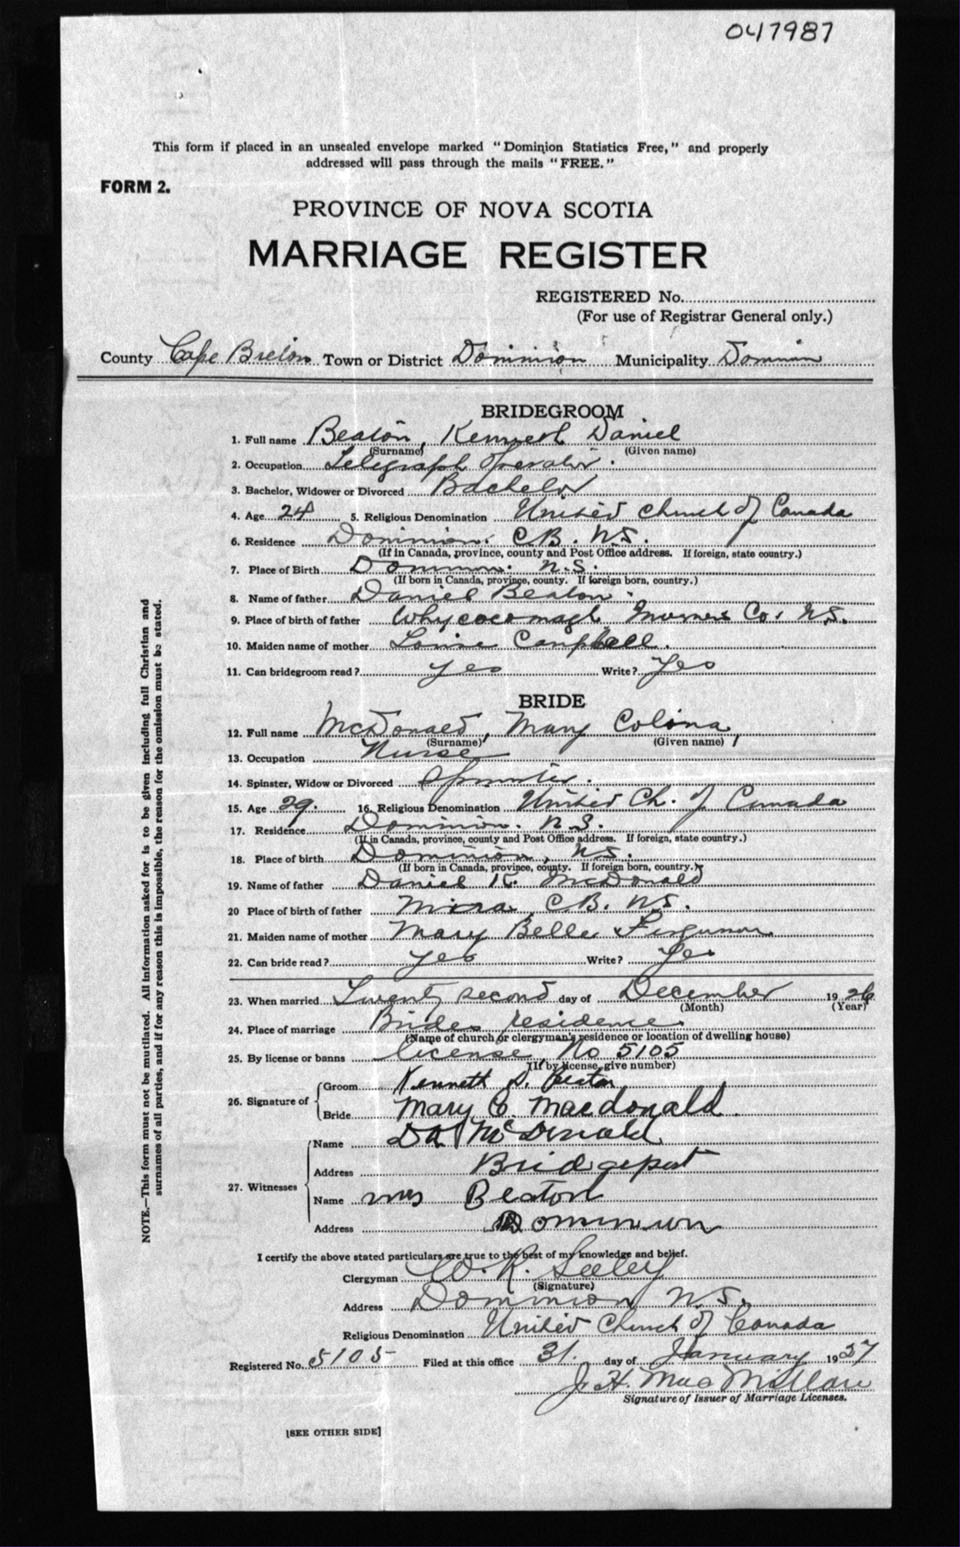 047987
This form if placed in an unsealed envelope marked "Dominion Statistics Free," and properly
addressed will pass through the mails "FREE."
FORM 2.
PROVINCE OF NOVA SCOTIA
MARRIAGE REGISTER
REGISTERED No.
(For use of Registrar General only.)
County Cape Breton Town or District Dominion Municipality Dominion
BRIDEGROOM
1. Full name Beaton, Kenneth Daniel
(Surname) (Given name)
2. Occupation Telegraph Operator.
3. Bachelor, Widower or Divorced Bachelor
4. Age 24 5. Religious Denomination United Church of Canada
6. Residence Dominion. C.B. N.S.
(If in Canada, province, county and Post Office address. If foreign, state country.)
7. Place of Birth Dominion. N.S.
(If born in Canada, province, county. If foreign born, country.)
8. Name of father Daniel Beaton.
9. Place of birth of father Whycocomagh Inverness Co. N.S.
10. Maiden name of mother Louise Campbell.
11. Can bridegroom read? yes Write? Yes
BRIDE
12. Full name McDonald, Mary Colina
(Surname) (Given name)
13. Occupation Nurse
14. Spinster, Widow or Divorced Spinster.
15. Age 29. 16. Religious Denomination United Ch. of Canada
17. Residence Dominion. N.S.
(If in Canada, province, county and Post Office address. If foreign, state country.)
18. Place of birth Dominion, N.S.
(If born in Canada, province, county. If foreign born, country.)
19. Name of father Daniel K. McDonald
20 Place of birth of father Mira, C.B. N.S.
21. Maiden name of mother Mary Belle Ferguson
22. Can bride read? yes Write? Yes
23. When married Twenty second day of December 1926
(Month) (Year)
24. Place of marriage Brides residence
(Name of church or clergyman's residence or location of dwelling house)
25. By license or banns license No 5105
(If by license, give number)
26. Signature of
Groom Kenneth D. Beaton
Bride Mary C. Macdonald.
27. Witnesses
Name McDonald
Address Bridgeport
Name Mrs Beaton
Address Dominion
I certify the above stated particulars are true to the best of my knowledge and belief.
Clergyman W. R. Seeley
(Signature)
Address Dominion N.S.
Religious Denomination United Church of Canada
Registered No. 5105 Filed at this office 31. day of January 1937
J. H. MacMillan
Signature of Issuer of Marriage Licenses.
[SEE OTHER SIDE]
NOTE.—This form must not be mutilated. All information asked for is to be given including full Christian and
surnames of all parties, and if for any reason this is impossible, the reason for the omission must be stated.